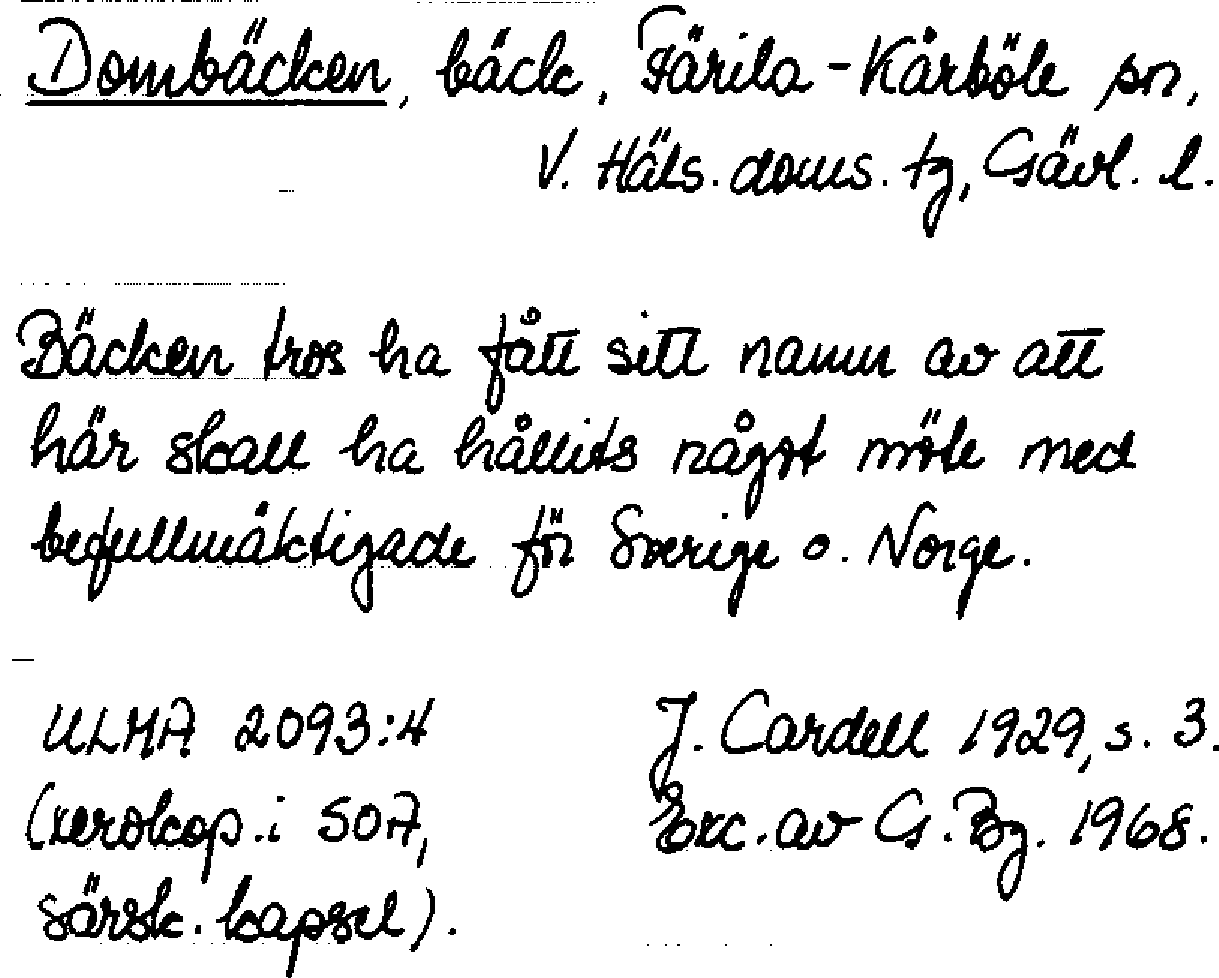 Dombäcken, bäck, Färila-Kårböle sn,
V. Häls. doms. tg, Gävl. l.
Bäcken tros ha fått sitt namn av att
här skall ha hållits något möte med
befullmäktigade för Sverige o. Norge.
ULMA 2093:4
(xerokop. i SOA,
särsk. kapsel).
J. Cardell 1929, s. 3.
Exc. av G. Bg. 1968.